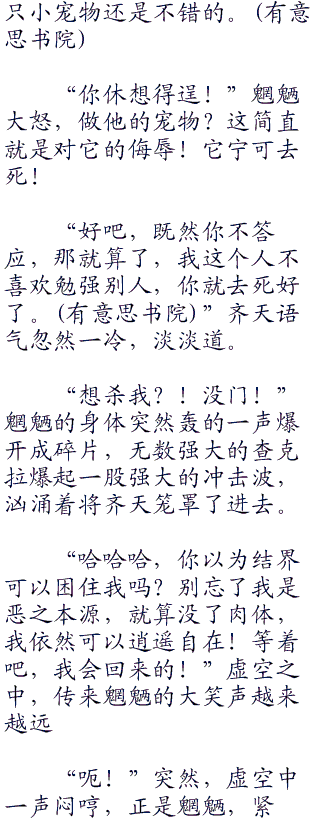 只小宠物还是不错的。(有意
思书院)
“你休想得逞！”魍魉
大怒，做他的宠物？这简直
就是对它的侮辱！它宁可去
死！
“好吧，既然你不答
应，那就算了，我这个人不
喜欢勉强别人，你就去死好
了。(有意思书院)”齐天语
气忽然一冷，淡淡道。
“想杀我？！没门！”
魍魉的身体突然轰的一声爆
开成碎片，无数强大的查克
拉爆起一股强大的冲击波，
汹涌着将齐天笼罩了进去。
“哈哈哈，你以为结界
可以困住我吗？别忘了我是
恶之本源，就算没了肉体，
我依然可以逍遥自在！等着
吧，我会回来的！”虚空之
中，传来魍魉的大笑声越来
越远
“呃！”突然，虚空中
一声闷哼，正是魍魉，紧